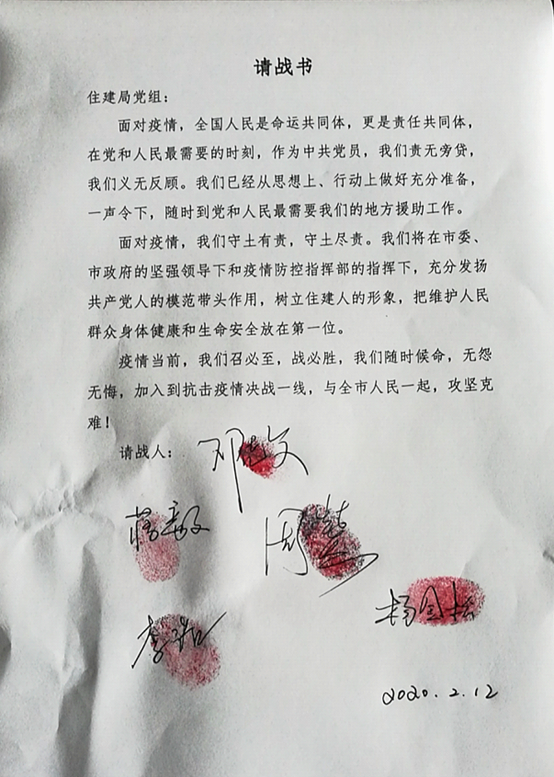 请战书
住建局党组：
面对疫情，全国人民是命运共同体，更是责任共同体，
在党和人民最需要的时刻，作为中共党员，我们责无旁贷，
我们义无反顾。我们已经从思想上、行动上做好充分准备，
一声令下，随时到党和人民最需要我们的地方援助工作。
面对疫情，我们守土有责，守土尽责。我们将在市委、
市政府的坚强领导下和疫情防控指挥部的指挥下，充分发扬
共产党人的模范带头作用，树立住建人的形象，把维护人民
群众身体健康和生命安全放在第一位。
疫情当前，我们召必至，战必胜，我们随时候命，无怨
无悔，加入到抗击疫情决战一线，与全市人民一起，攻坚克
难！
请战人：
2020.2.12